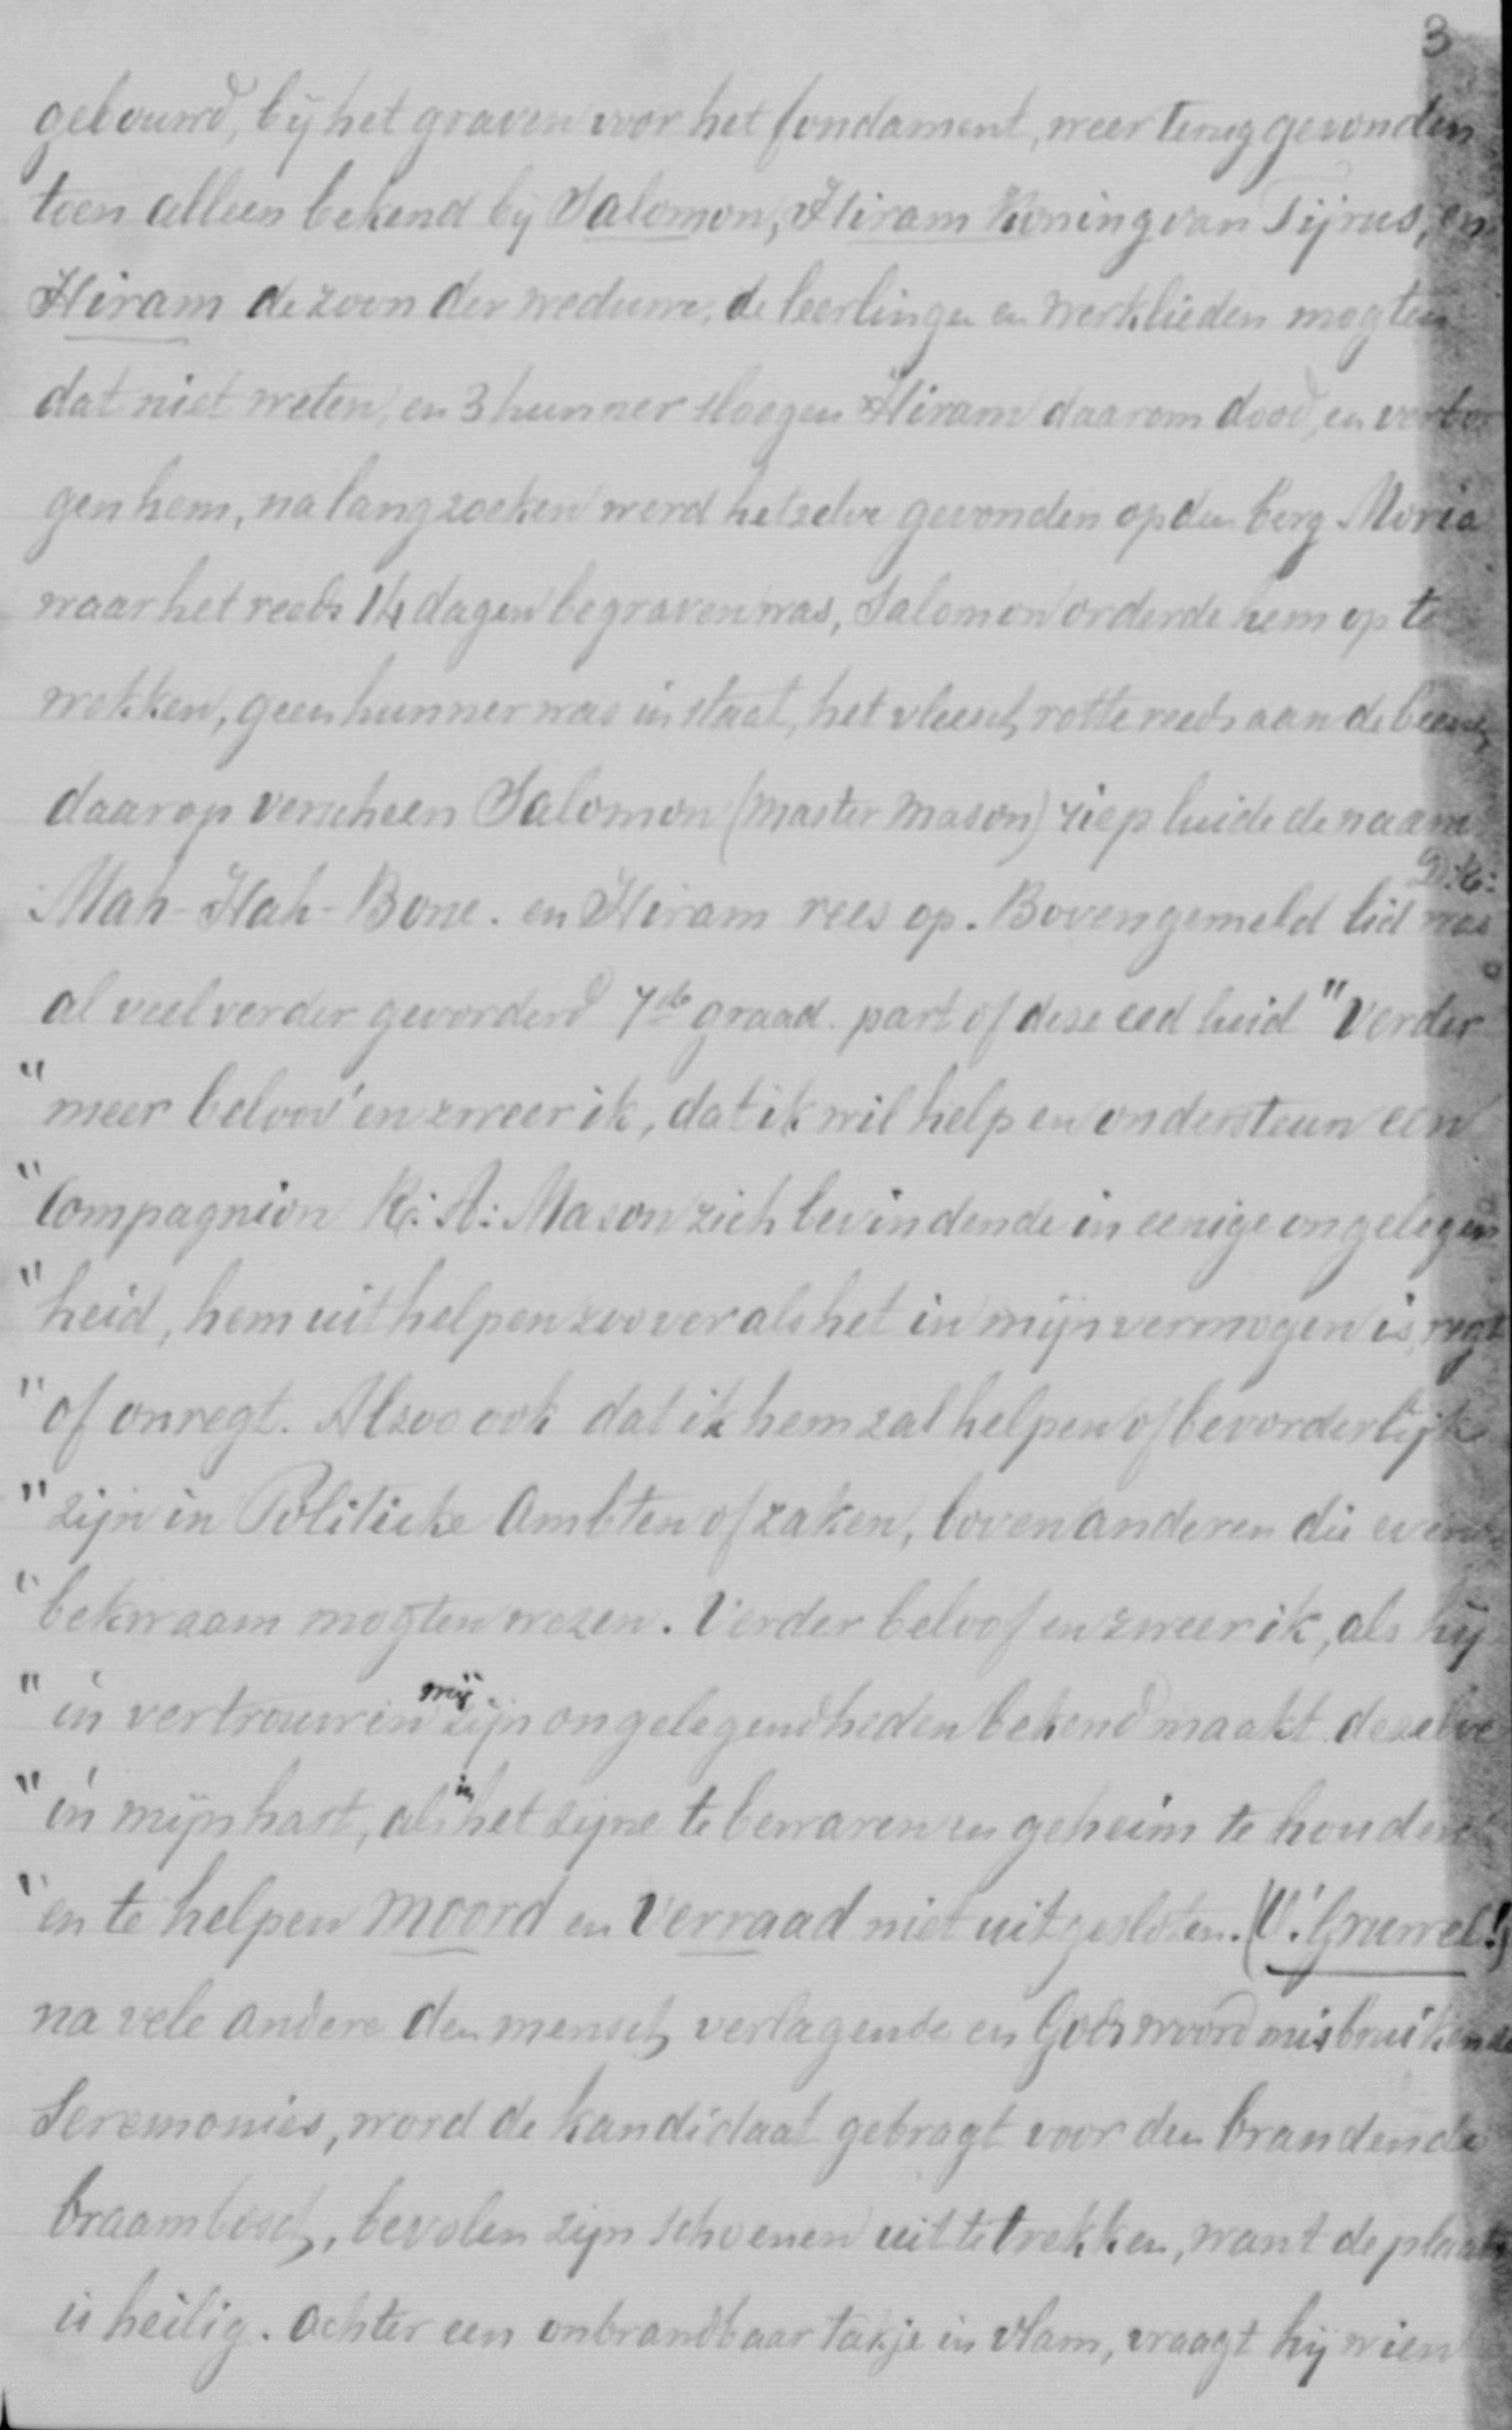 3
gebouwd, bij het graven voor het fondament, weer terug gevonden
toen alleen bekend bij Salomon, Hiram Koning van Tijrus, en
Hiram de zoon der weduwe, de leerlingen en werklieden mogten
dat niet weten, en 3 hunner sloegen Hiram daarom dood, en verbor
gen hem, na lang zoeken werd hetzelve gevonden op den berg Moria
waar het reeds 14 dagen begraven was, Salomon orderde hem op te
wekken, geen hunner was in staat, het vleesch rotte reeds aan de beenen,
daarop verscheen Salomon (Master Mason) riep luide de naam
Mah-Hah-Bone. en Hiram rees op. Bovengemeld lid D.K: was
al veel verder gevorderd 7de graad. part of deze eed luid "Verder
"meer beloov' en zweer ik, dat ik wil help en ondersteun een
"Compagnion R: A: Mason zich bevindende in eenige ongelegen
"heid, hem uithelpen zoo ver als het in mijn vermogen is, regt
"of onregt. Alzoo ook dat ik hem zal helpen of bevorderlijk
"zijn in Politieke Ambten of zaken, boven anderen die even
"bekwaam mogten wezen. Verder beloof en zweer ik, als hij
"in vertrouwen mij zijn ongelegendheden bekend maakt dezelve
"in mijn hart, als in het zijne te bewaren en geheim te houden
"en te helpen moord en Verraad niet uitgesloten. (O! Gruwel!)
na vele andere den mensch verlagende en Gods woord misbruikende
Seremonies, word de kandidaat gebragt voor den brandende
braambosch, bevolen zijn schoenen uit te trekken, want de plaats
is heilig. Achter een onbrandbaar takje in vlam, vraagt hij wien